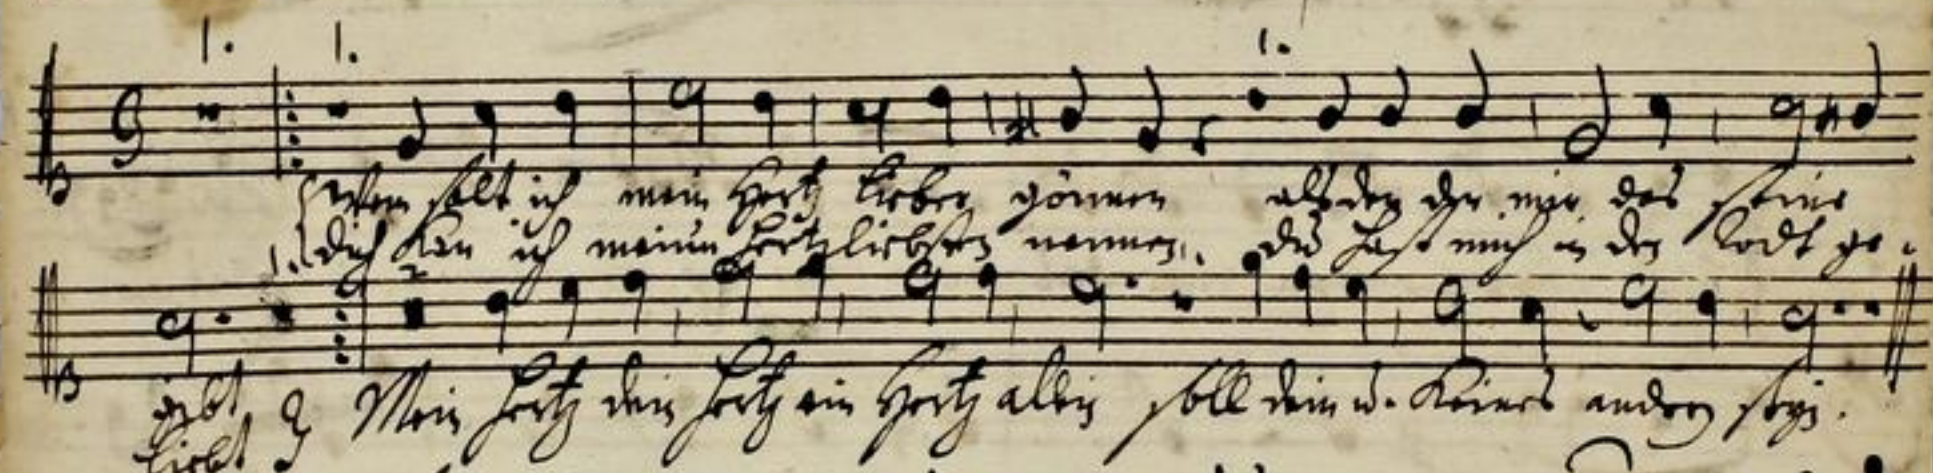 Wem solt ich mein Hertz lieber gönnen als dem der mir das seine
dich kan ich meinen hertzliebsten nennen, du hast mich in den Todt ge-
gibt
liebt
Mein hertz dein hertz ein Hertz allein soll dein u. keines andern seyn.